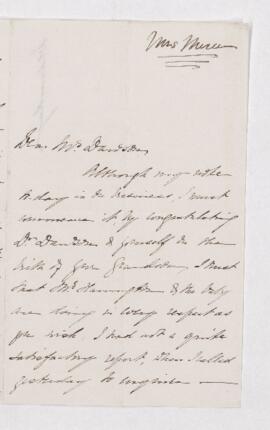 Dear Mrs Davidson
Although my note
to day is on business, I must
commence it by congratulating
Dr Davidson & yourself on the
birth of your Grandson, I trust
that Mrs Hannington & the baby
are doing in every respect as
you wish, I had not a quite
satisfactory report, when I called
yesterday to enquire —